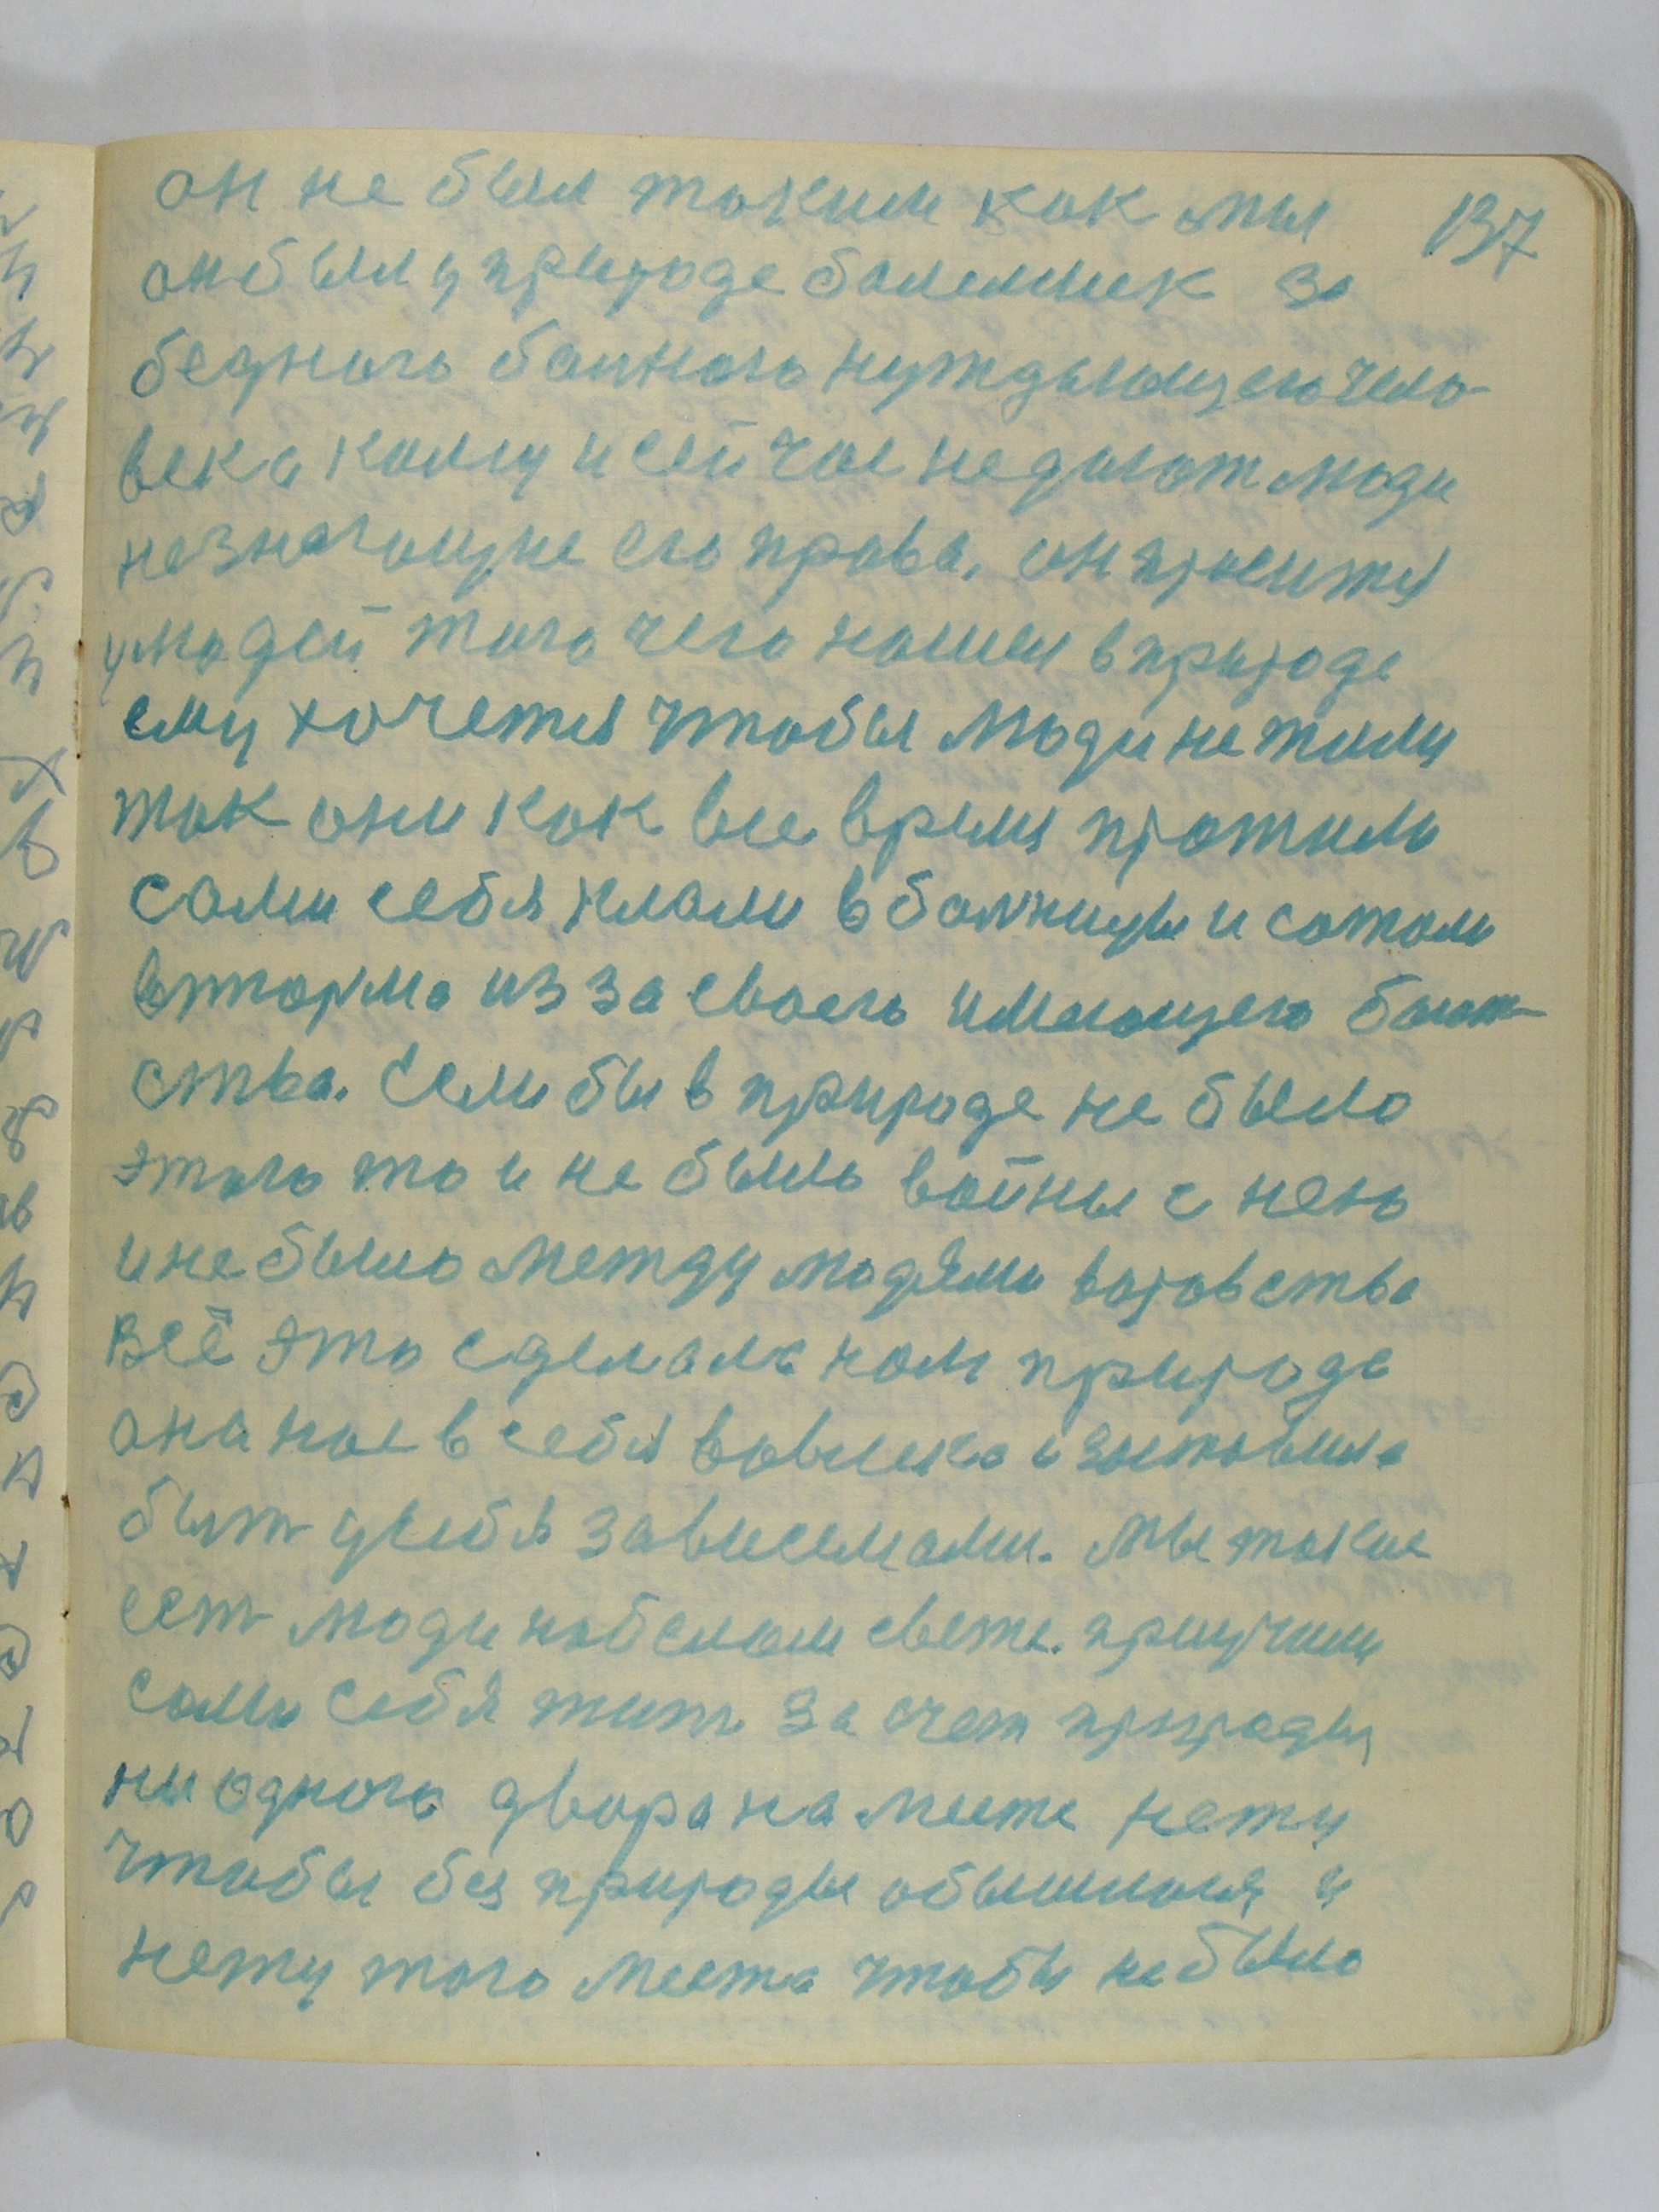 137
он не был таким как мы
он был у природе болельшик за
бедного больного нуждающего чело-
века кому и сейчас не дают люди
незнающие его права. он просится
у людей того чего нашел в природе
ему хочется чтобы люди не жили
так они как все время прожили
сами себя клали в больницы и сажали
в тюрьма из за своего имеющего богат-
ства. Если бы в природе не было
этого то и не было войны с нею
и не было между людями воровства
Всё это сделала нам природа
она нас в себя вовлекла и заставила
быт у себя зависемами. мы такие
ест люди на белом свете. приучили
сами себя жит за счет природы
ни одного двора на месте нету
чтобы без природы обышлися, и
нету того места чтобы не было